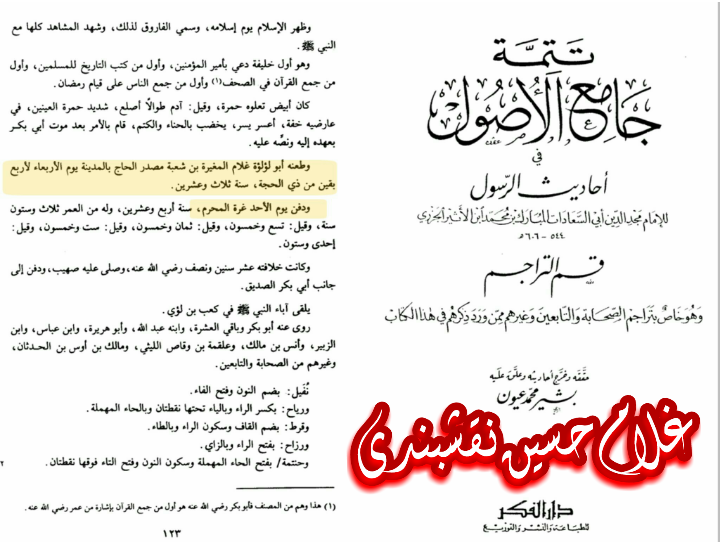 تتمة
جامع الأصول
في
أحاديث الرسول
للإمام مجد الدين أبي السعادات المبارك بن محمد ابن الأثير الجزري
٥٤٤ - ٦٠٦ هـ
قسم التراجم
وهو خاص بتراجم الصحابة والتابعين وغيرهم ممن ورد ذكرهم في هذا الكتاب
حققه وخرج أحاديثه وعلق عليه
بشير محمد عيون
غلام حسین نقشبندی
دار الفكر
للطباعة والنشر والتوزيع
وظهر الإسلام يوم إسلامه، وسمي الفاروق لذلك، وشهد المشاهد كلها مع
النبي ﷺ.
وهو أول خليفة دعي بأمير المؤمنين، وأول من كتب التاريخ للمسلمين، وأول
من جمع القرآن في الصحف(١) وأول من جمع الناس على قيام رمضان.
كان أبيض تعلوه حمرة، وقيل: آدم طوالاً أصلع، شديد حمرة العينين، في
عارضيه خفة، أعسر يسر، يخضب بالحناء والكتم، قام بالأمر بعد موت أبي بكر
بعهده إليه ونصِّه عليه.
وطعنه أبو لؤلؤة غلام المغيرة بن شعبة مصدر الحاج بالمدينة يوم الأربعاء لأربع
بقين من ذي الحجة، سنة ثلاث وعشرين.
ودفن يوم الأحد غرة المحرم، سنة أربع وعشرين، وله من العمر ثلاث وستون
سنة، وقيل: تسع وخمسون، وقيل: ثمان وخمسون، وقيل: ست وخمسون، وقيل:
إحدى وستون.
وكانت خلافته عشر سنين ونصف رضي الله عنه، وصلى عليه صهيب، ودفن إلى
جانب أبي بكر الصديق.
يلقى آباء النبي ﷺ في كعب بن لؤي.
روى عنه أبو بكر وباقي العشرة، وابنه عبد الله، وأبو هريرة، وابن عباس، وابن
الزبير، وأنس بن مالك، وعلقمة بن وقاص الليثي، ومالك بن أوس بن الحدثان،
وغيرهم من الصحابة والتابعين.
نُفَيل: بضم النون وفتح الفاء.
ورياح: بكسر الراء وبالياء تحتها نقطتان وبالحاء المهملة.
وقرط: بضم القاف وسكون الراء وبالطاء.
ورزاح: بفتح الراء وبالزاي.
وحنتمة/ بفتح الحاء المهملة وسكون النون وفتح التاء فوقها نقطتان.
٢
(١) هذا وهم من المصنف فأبو بكر رضي الله عنه هو أول من جمع القرآن بإشارة من عمر رضي الله عنه.
١٢٣